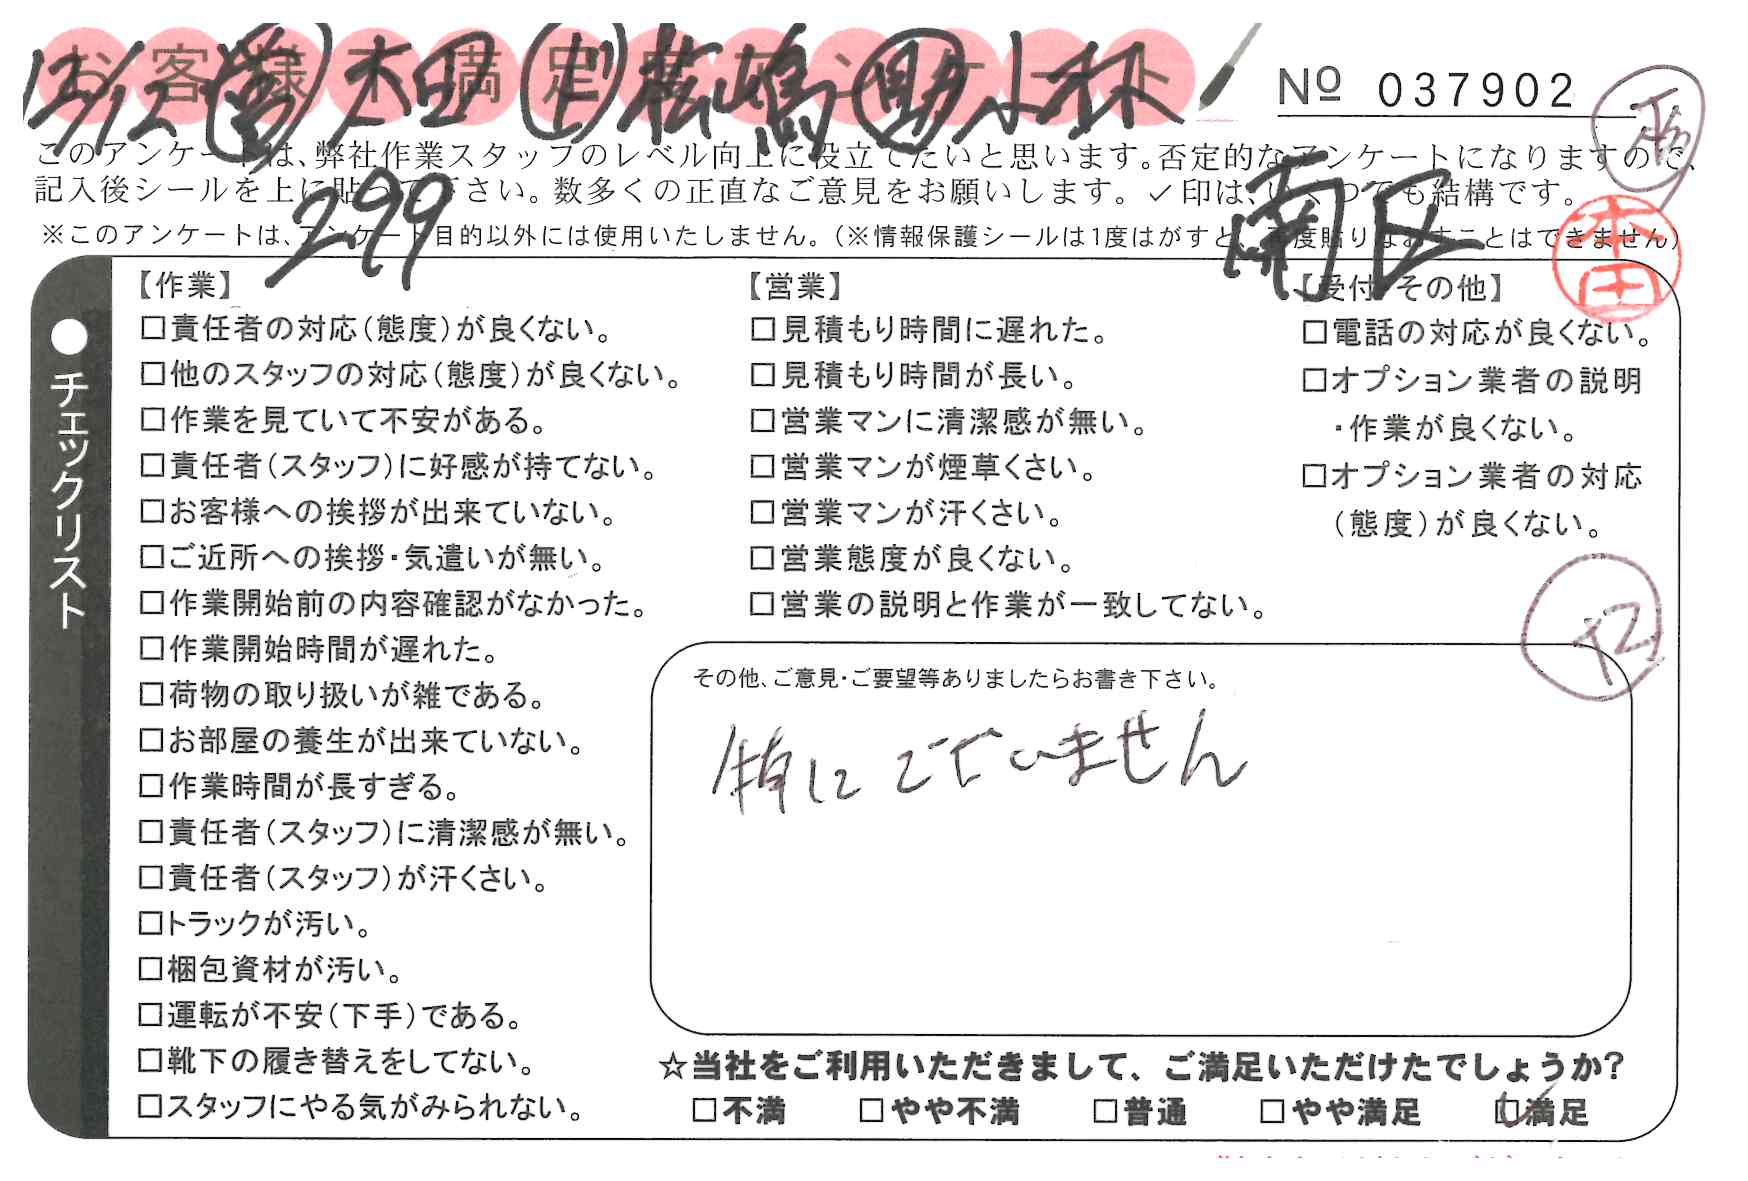 お客様不満足度アンケート
12/12 営 本田 ド 松嶋 助 小林
№ 037902
このアンケートは、弊社作業スタッフのレベル向上に役立てたいと思います。否定的なアンケートになりますので、
記入後シールを上に貼って下さい。数多くの正直なご意見をお願いします。✓印は、いくつでも結構です。
※このアンケートは、アンケート目的以外には使用いたしません。(※情報保護シールは1度はがすと、再度貼りなおすことはできません)
299
南区
本田
●チェックリスト
【作業】
□責任者の対応(態度)が良くない。
□他のスタッフの対応(態度)が良くない。
□作業を見ていて不安がある。
□責任者(スタッフ)に好感が持てない。
□お客様への挨拶が出来ていない。
□ご近所への挨拶・気遣いが無い。
□作業開始前の内容確認がなかった。
□作業開始時間が遅れた。
□荷物の取り扱いが雑である。
□お部屋の養生が出来ていない。
□作業時間が長すぎる。
□責任者(スタッフ)に清潔感が無い。
□責任者(スタッフ)が汗くさい。
□トラックが汚い。
□梱包資材が汚い。
□運転が不安(下手)である。
□靴下の履き替えをしてない。
□スタッフにやる気がみられない。
【営業】
□見積もり時間に遅れた。
□見積もり時間が長い。
□営業マンに清潔感が無い。
□営業マンが煙草くさい。
□営業マンが汗くさい。
□営業態度が良くない。
□営業の説明と作業が一致してない。
【受付・その他】
□電話の対応が良くない。
□オプション業者の説明
・作業が良くない。
□オプション業者の対応
(態度)が良くない。
その他、ご意見・ご要望等ありましたらお書き下さい。
特にございません
☆当社をご利用いただきまして、ご満足いただけたでしょうか?
□不満 □やや不満 □普通 □やや満足 ☑満足